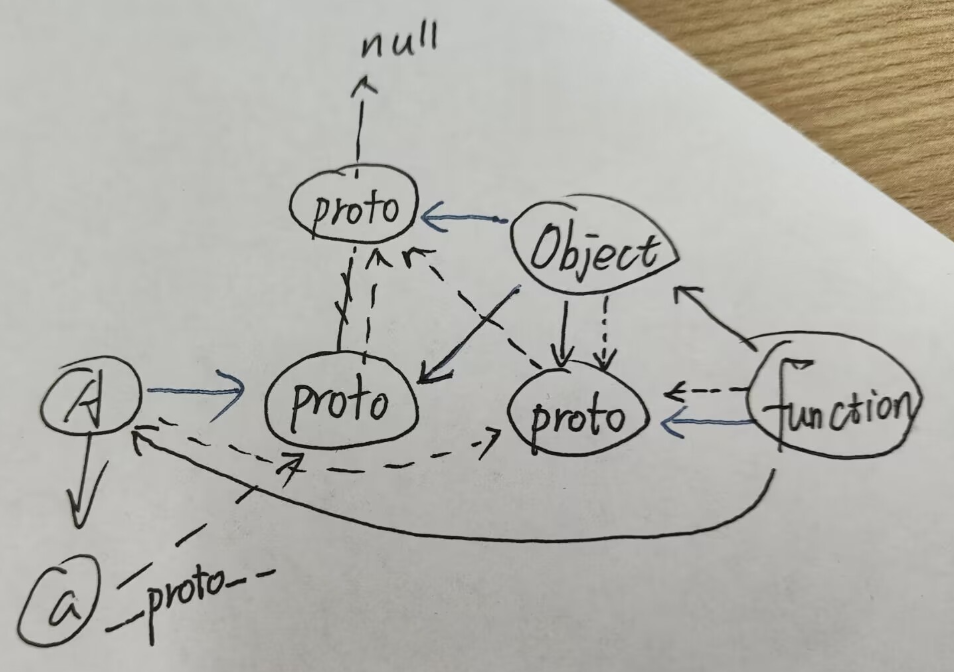 null
proto
Object
A
proto
proto
function
a
__proto--